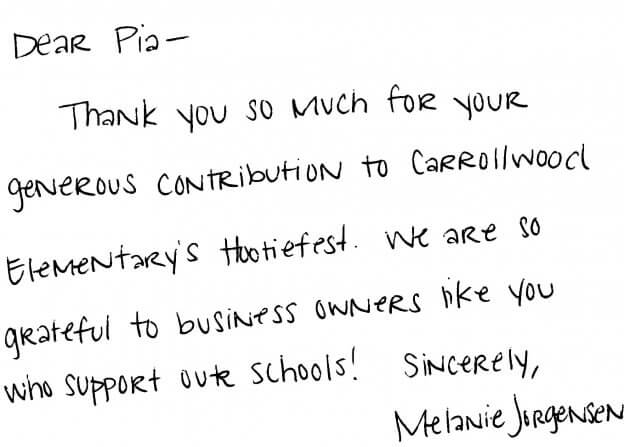 Dear Pia—
Thank you so much for your
generous contribution to Carrollwood
Elementary's Hootiefest. We are so
grateful to business owners like you
who support our schools! Sincerely,
Melanie Jorgensen